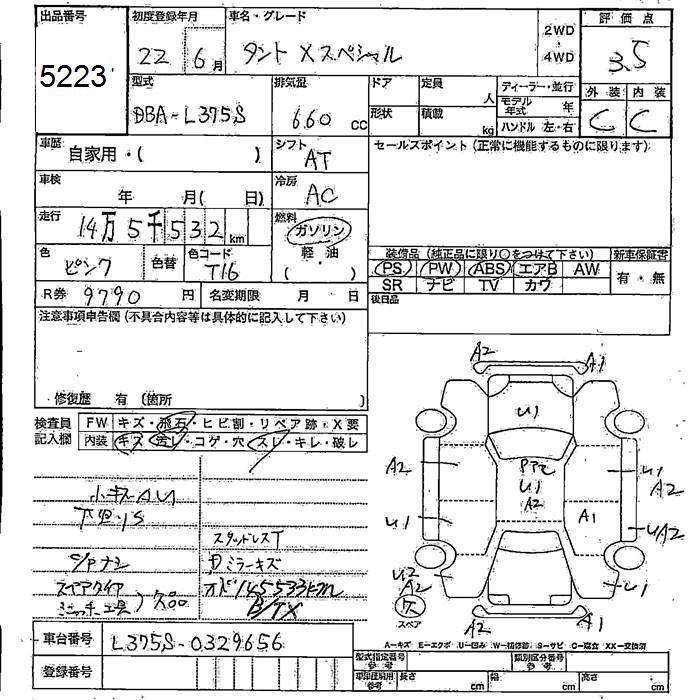 出品番号 5223
初度登録年月 22 6月
車名・グレード タント Xスペシャル
2WD
4WD
評価点 3.5
型式 DBA-L375S
排気量 660 cc
ドア
形状
定員 人
積載 kg
ディーラー・並行
モデル年式 年
ハンドル 左・右
外装 内装
C C
車歴 自家用・( )
シフト AT
セールスポイント (正常に機能するものに限ります)
車検 年 月( 日)
冷房 AC
走行 14万5千532km
燃料 ガソリン
軽油
( )
色 ピンク
色替
色コード T16
装備品 (純正品に限り○をつけて下さい)
新車保証書
PS PW ABS エアB AW
SR ナビ TV カワ
有・無
R券 9790円
名変期限 月 日
後日品
注意事項申告欄 (不具合内容等は具体的に記入して下さい)
修復歴 有 (箇所 )
検査員記入欄
FW キズ・飛石・ヒビ割・リペア跡・X要
内装 キズ・汚レ・コゲ・穴・スレ・キレ・破レ
小キズAU
下廻りS
スタッドレスT
S/Pナシ
Dミラーキズ
スペアタイヤ
ジャッキー工具)欠品
オドメ145533km
B/TX
A2 A1
U1
A2
PアU
U1
A2
U1
A2
U1
A1
UA2
U2
A2
欠
スペア
U1
A2 A1
A-キズ E-エクボ U-凹み W-補修跡 S-サビ C-腐食 XX-交換済
車台番号 L375S-0329656
登録番号
型式指定番号 参考
類別区分番号 参考
車両症明用 参考
長さ cm
幅 cm
高さ cm